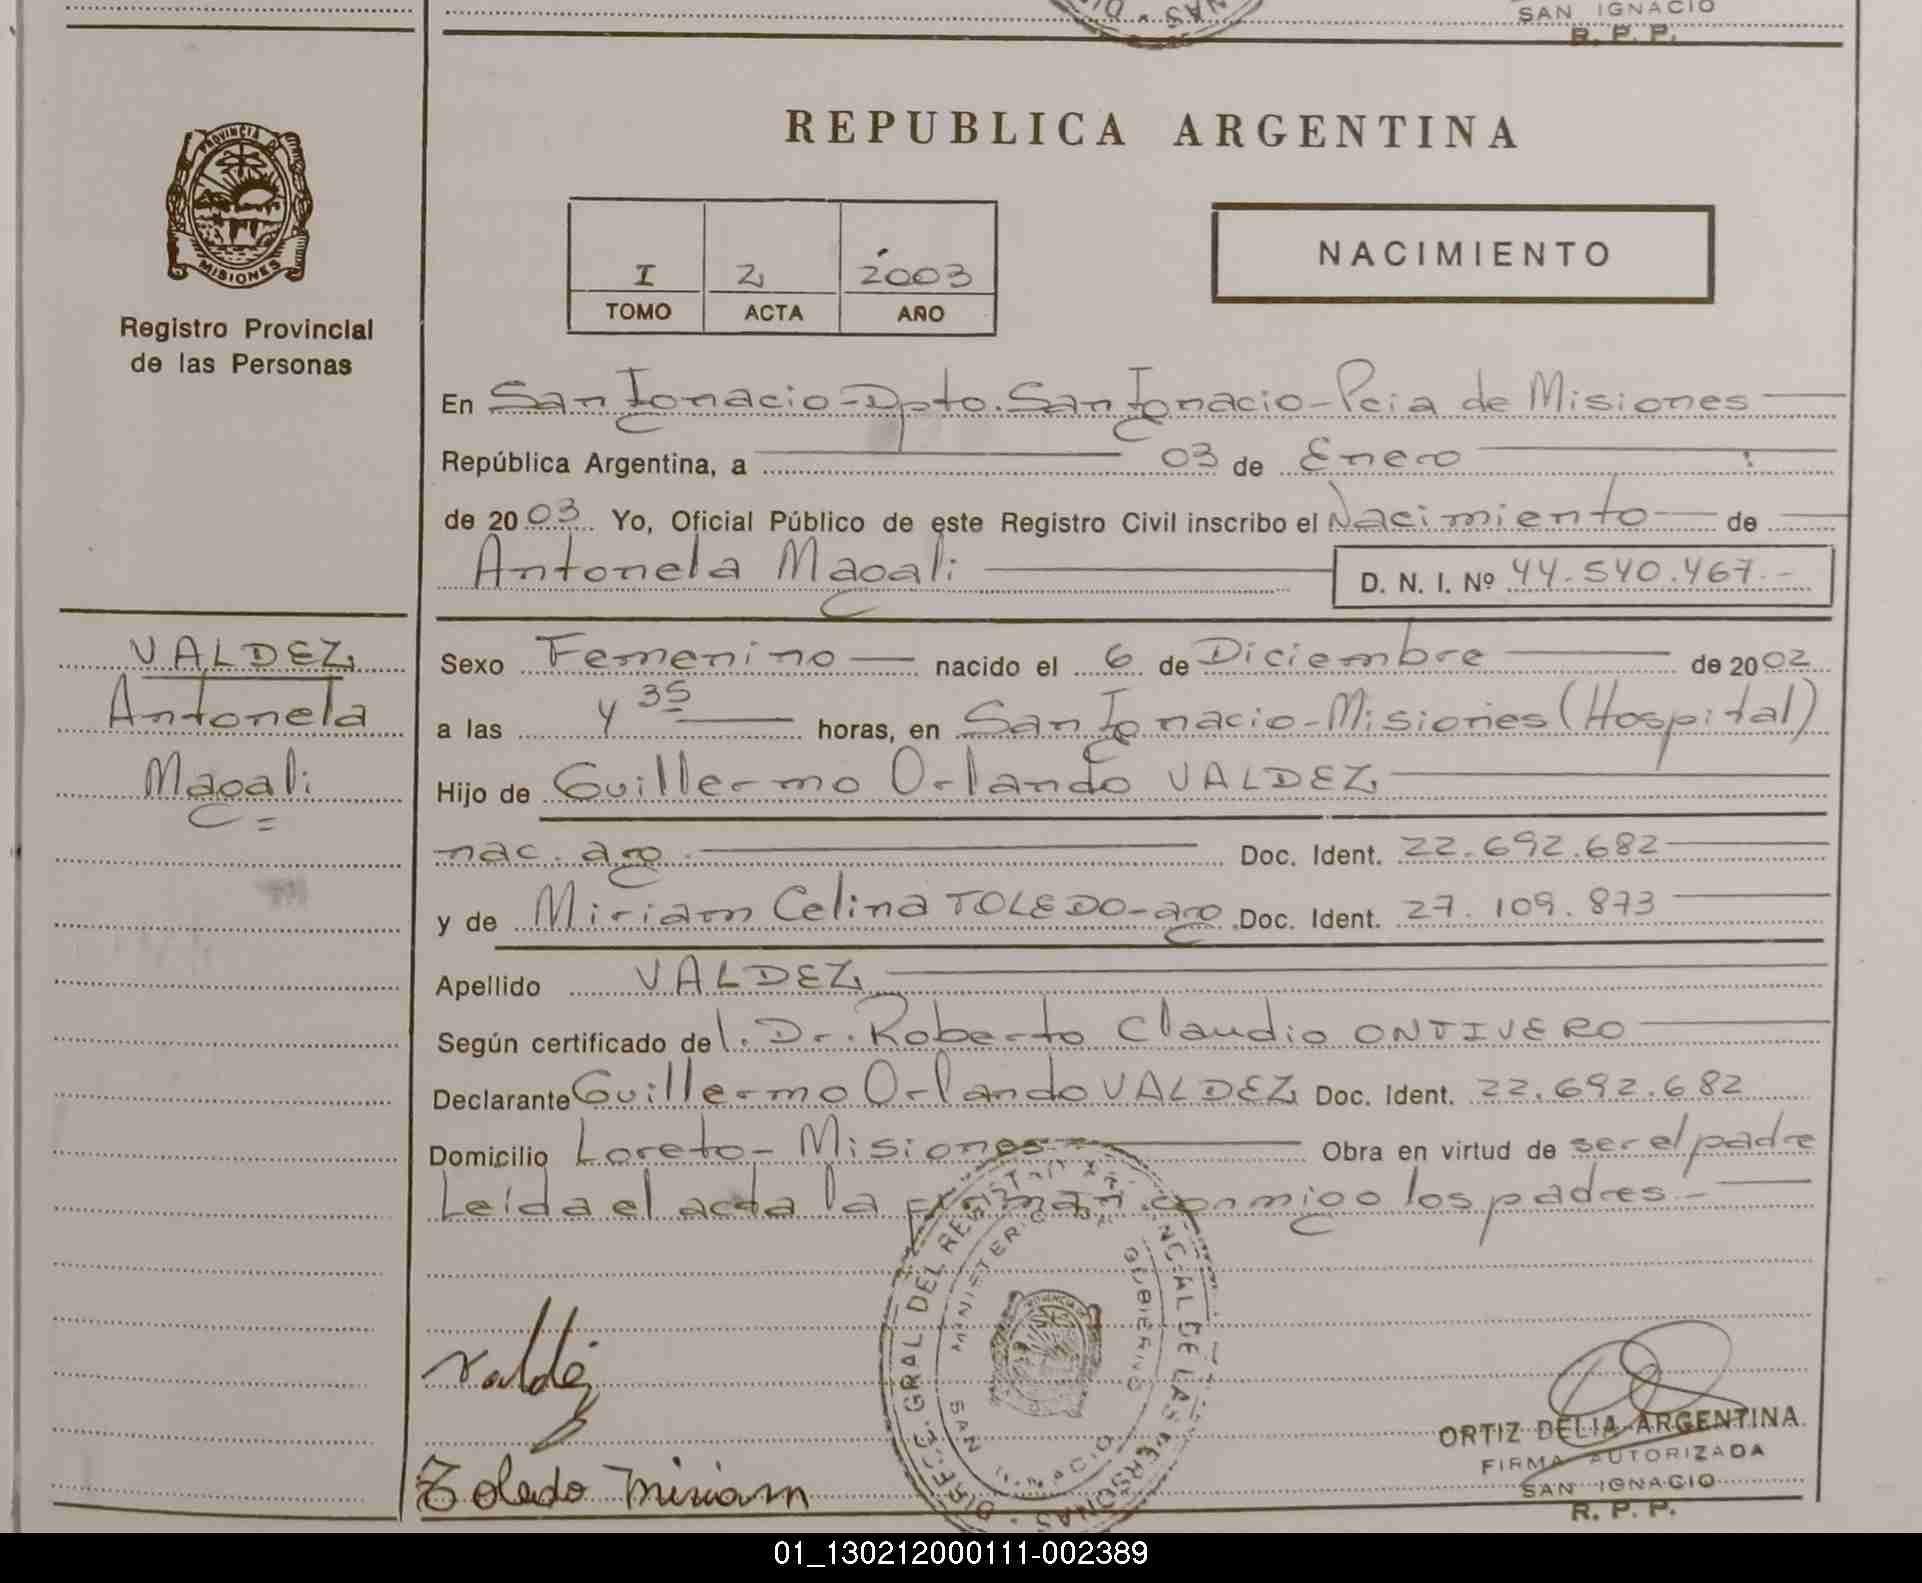 SAN IGNACIO
R. P. P.
REPUBLICA ARGENTINA
PROVINCIA DE
MISIONES
Registro Provincial
de las Personas
I 2 2003
TOMO ACTA AÑO
NACIMIENTO
En San Ignacio-Dpto. San Ignacio-Pcia de Misiones
República Argentina, a 03 de Enero
de 2003 Yo, Oficial Público de este Registro Civil inscribo el Nacimiento de
Antonela Magali D. N. I. Nº 44.540.467.-
VALDEZ
Antonela
Magali =
Sexo Femenino nacido el 6 de Diciembre de 2002
a las 4 35 horas, en San Ignacio-Misiones (Hospital)
Hijo de Guillermo Orlando VALDEZ
nac. arg. Doc. Ident. 22.692.682
y de Miriam Celina TOLEDO-arg. Doc. Ident. 27.109.873
Apellido VALDEZ
Según certificado del. Dr. Roberto Claudio ONTIVERO
Declarante Guillermo Orlando VALDEZ Doc. Ident. 22.692.682
Domicilio Loreto- Misiones Obra en virtud de ser el padre
Leida el acta la firman conmigo los padres.-
DIREC. GRAL DEL REGISTRO PROVINCIAL DE LAS PERSONAS
MINISTERIO DE GOBIERNO
SAN IGNACIO
Valdéz
Toledo Miriam
ORTIZ DELIA ARGENTINA
FIRMA AUTORIZADA
SAN IGNACIO
R. P. P.
01_130212000111-002389